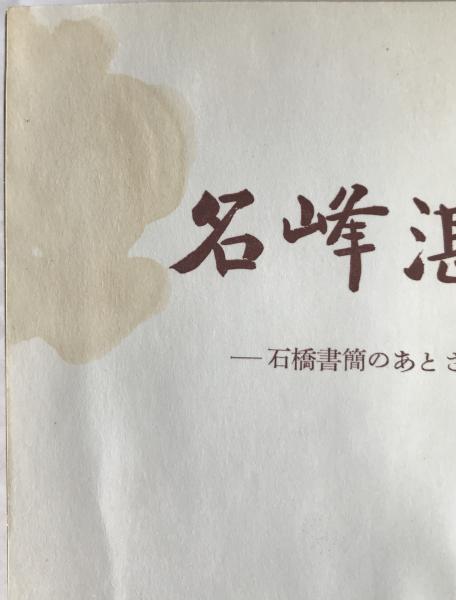 名峰湛
—石橋書簡のあとさ